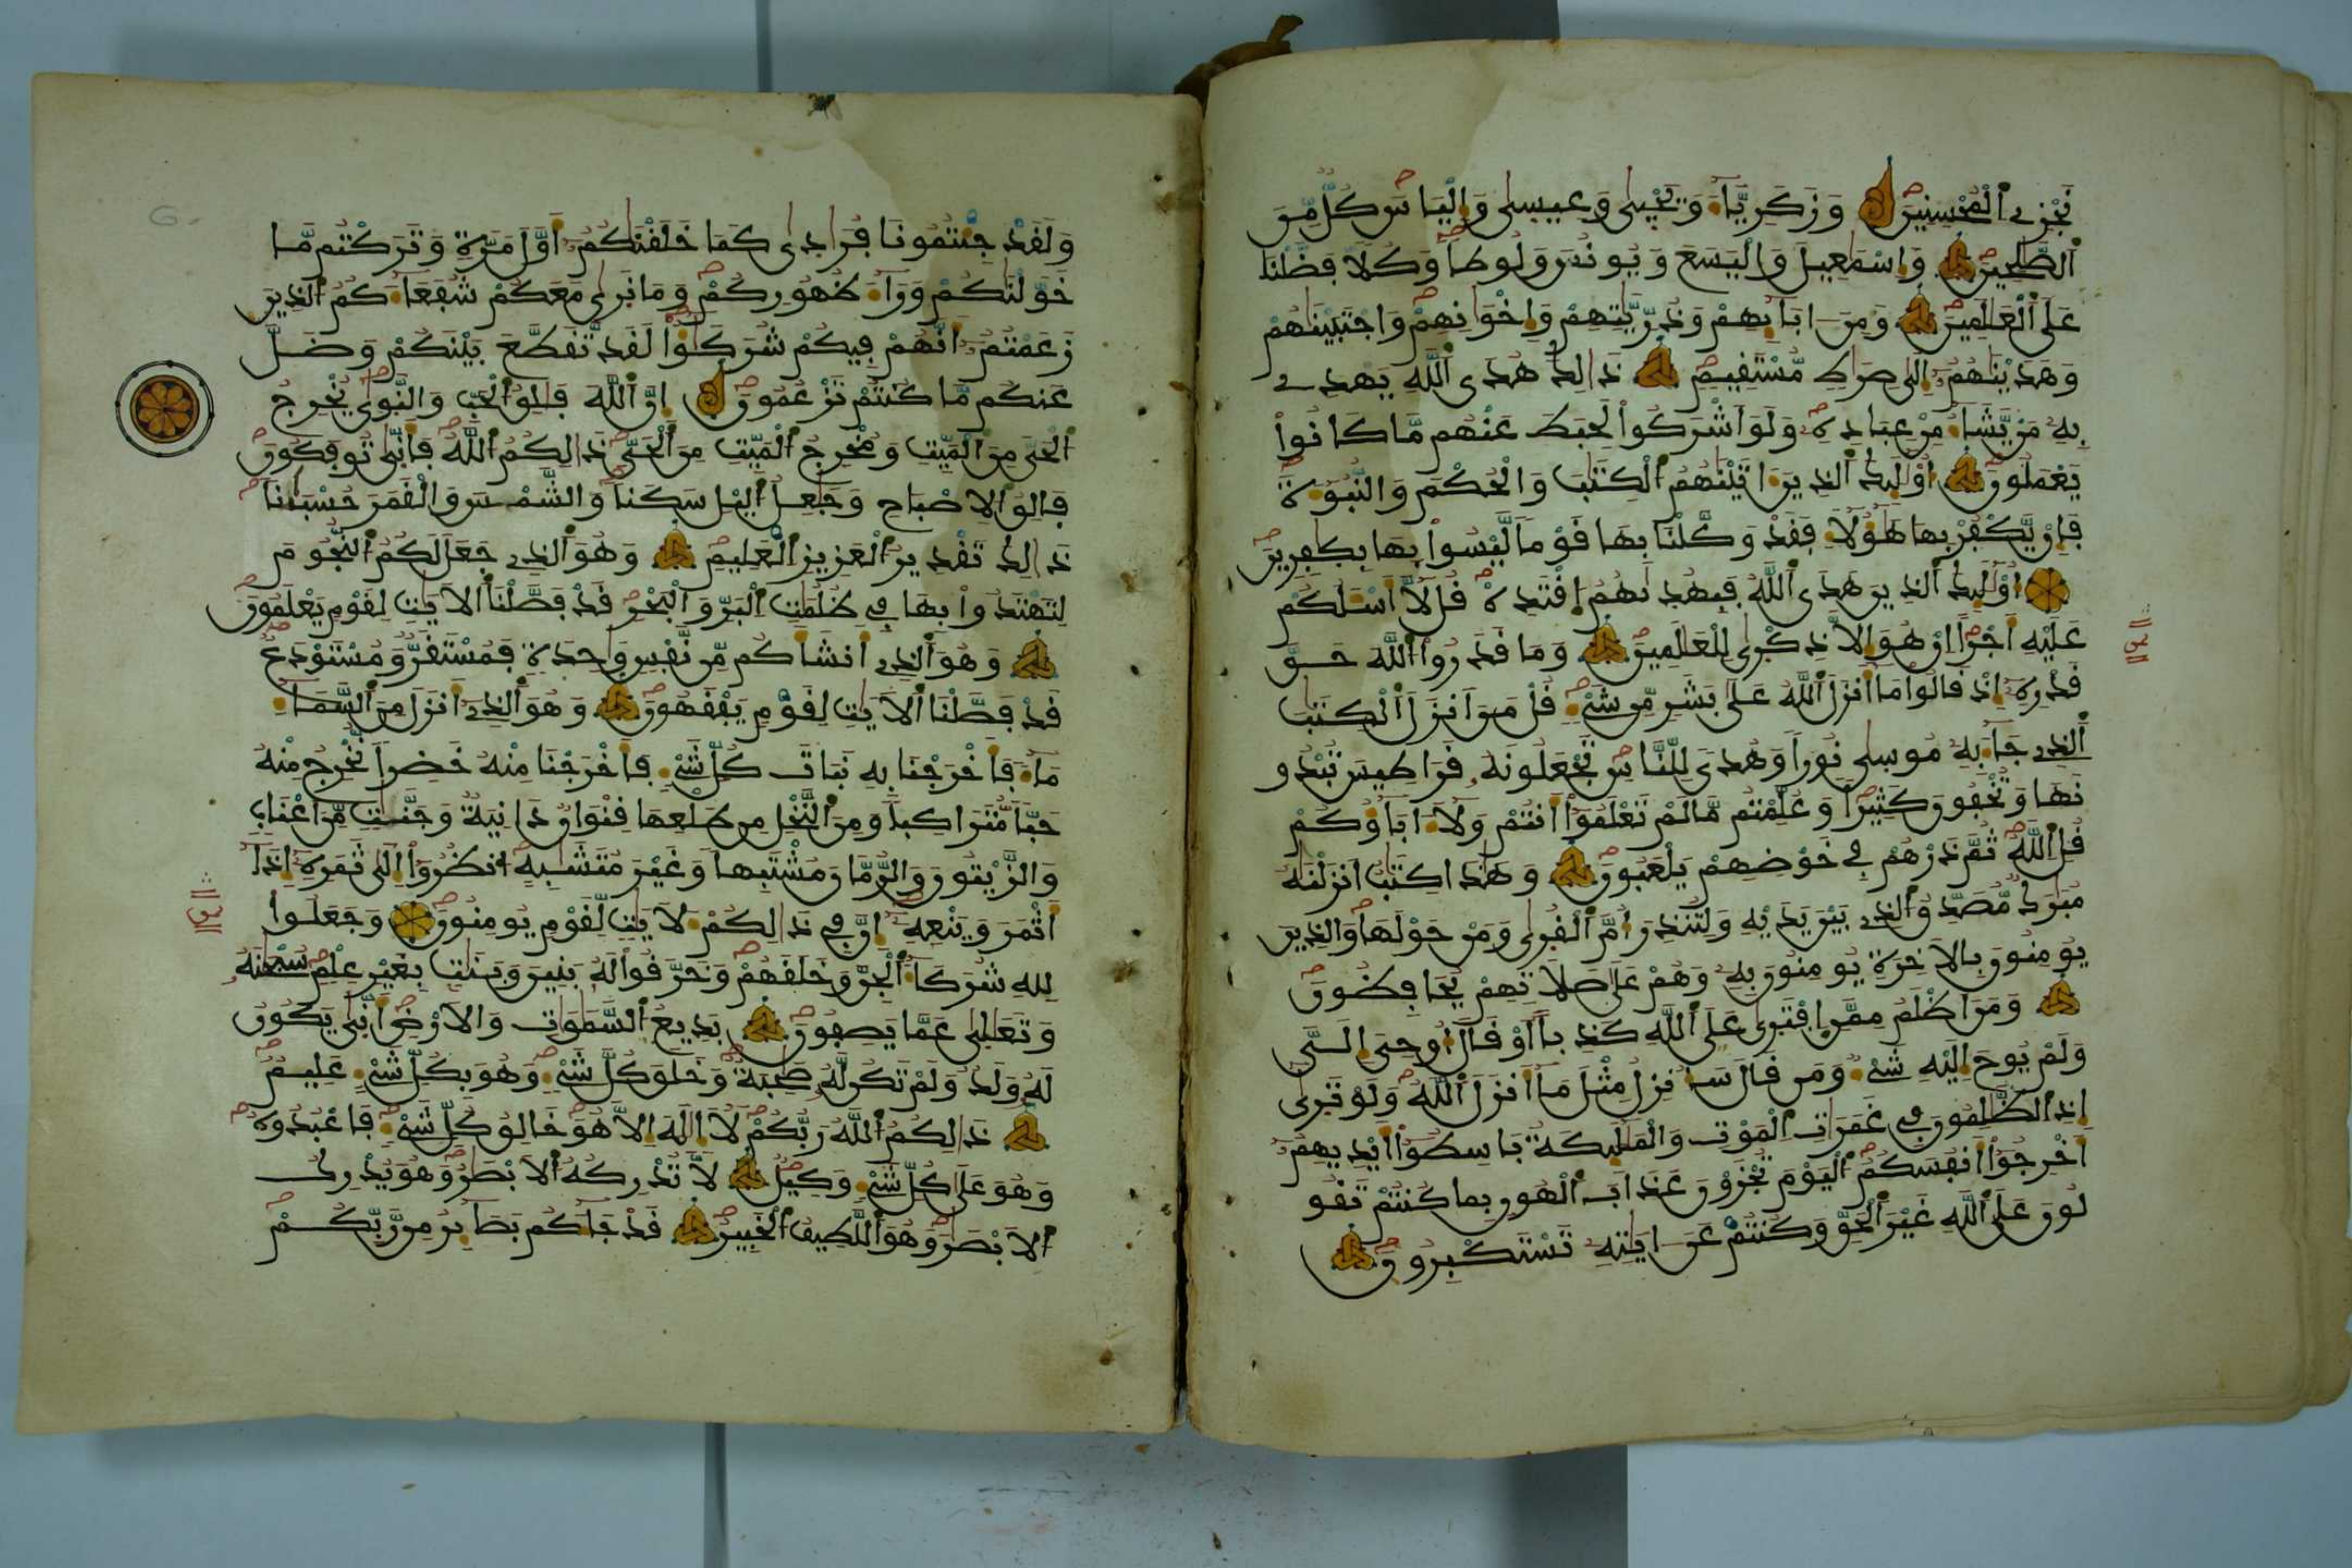 نَجْزِے اِ۬لْمُحْسِنِينَ وَزَكَرِيَّآءَ وَيَحْيٜىٰ وَعِيسٜىٰ وَإِلْيَاسَ كُلٌّ مِّنَ
اَ۬لصَّٰلِحِينَ وَإِسْمَٰعِيلَ وَالْيَسَعَ وَيُونُسَ وَلُوطاٗ وَكُلّاٗ فَضَّلْنَا
عَلَى اَ۬لْعَٰلَمِينَ وَمِنَ اٰبَآئِهِمْ وَذُرِّيَّٰتِهِمْ وَإِخْوَٰنِهِمْ وَاجْتَبَيْنَٰهُمْ
وَهَدَيْنَٰهُمُۥٓ إِلَىٰ صِرَٰطٖ مُّسْتَقِيمٖ ذَٰلِكَ هُدَى اَ۬للَّهِ يَهْدِے
بِهِۦ مَنْ يَّشَآءُ مِنْ عِبَادِهِۦ وَلَوَ اَشْرَكُواْ لَحَبِطَ عَنْهُم مَّا كَانُواْ
يَعْمَلُونَ أُوْلَٰٓئِكَ اَ۬لذِينَ ءَاتَيْنَٰهُمُ اُ۬لْكِتَٰبَ وَالْحُكْمَ وَالنُّبُوٓءَةَ
فَإِنْ يَّكْفُرْ بِهَا هَٰٓؤُلَآءِ فَقَدْ وَكَّلْنَا بِهَا قَوْماٗ لَّيْسُواْ بِهَا بِكٰفِرِينَ
أُوْلَٰٓئِكَ اَ۬لذِينَ هَدَى اَ۬للَّهُ فَبِهُدٜىٰهُمُ اُ۪قْتَدِهْ قُل لَّآ أَسْـَٔلُكُمْ
عَلَيْهِ أَجْراً اِنْ هُوَ إِلَّا ذِكْرٜىٰ لِلْعَٰلَمِينَ وَمَا قَدَرُواْ اُ۬للَّهَ حَقَّ
قَدْرِهِۦٓ إِذْ قَالُواْ مَآ أَنزَلَ اَ۬للَّهُ عَلَىٰ بَشَرٖ مِّن شَےْءٖ قُلْ مَنَ اَنزَلَ اَ۬لْكِتَٰبَ
اَ۬لذِے جَآءَ بِهِۦ مُوسٜىٰ نُوراٗ وَهُدىٗ لِّلنَّاسِ تَجْعَلُونَهُۥ قَرَاطِيسَ تُبْدُو
نَهَا وَتُخْفُونَ كَثِيراٗ وَعُلِّمْتُم مَّا لَمْ تَعْلَمُوٓاْ أَنتُمْ وَلَآ ءَابَآؤُكُمْ
قُلِ اِ۬للَّهُ ثُمَّ ذَرْهُمْ فِے خَوْضِهِمْ يَلْعَبُونَ وَهَٰذَا كِتَٰبٌ اَنزَلْنَٰهُ
مُبَٰرَكٞ مُّصَدِّقُ اُ۬لذِے بَيْنَ يَدَيْهِ وَلِتُنذِرَ أُمَّ اَ۬لْقُرٜىٰ وَمَنْ حَوْلَهَا وَالذِينَ
يُومِنُونَ بِالَاخِرَةِ يُومِنُونَ بِهِۦ وَهُمْ عَلَىٰ صَلَاتِهِمْ يُحَافِظُونَ
وَمَنَ اَظْلَمُ مِمَّنِ اِ۪فْتَرٜىٰ عَلَى اَ۬للَّهِ كَذِباً اَوْ قَالَ أُوحِيَ إِلَيَّ
وَلَمْ يُوحَ إِلَيْهِ شَےْءٞ وَمَن قَالَ سَأُنزِلُ مِثْلَ مَآ أَنزَلَ اَ۬للَّهُ وَلَوْ تَرٜىٰٓ
إِذِ اِ۬لظَّٰلِمُونَ فِے غَمَرَٰتِ اِ۬لْمَوْتِ وَالْمَلَٰٓئِكَةُ بَاسِطُوٓاْ أَيْدِيهِمُۥٓ
أَخْرِجُوٓاْ أَنفُسَكُمُ اُ۬لْيَوْمَ تُجْزَوْنَ عَذَابَ اَ۬لْهُونِ بِمَا كُنتُمْ تَقُو
لُونَ عَلَى اَ۬للَّهِ غَيْرَ اَ۬لْحَقِّ وَكُنتُمْ عَنَ اٰيَٰتِهِۦ تَسْتَكْبِرُونَ
وَلَقَدْ جِئْتُمُونَا فُرَٰدٜىٰ كَمَا خَلَقْنَٰكُمُۥٓ أَوَّلَ مَرَّةٖ وَتَرَكْتُم مَّا
خَوَّلْنَٰكُمْ وَرَآءَ ظُهُورِكُمْ وَمَا نَرٜىٰ مَعَكُمْ شُفَعَآءَكُمُ اُ۬لذِينَ
زَعَمْتُمُۥٓ أَنَّهُمْ فِيكُمْ شُرَكَٰٓؤُاْ لَقَد تَّقَطَّعَ بَيْنَكُمْ وَضَلَّ
عَنكُم مَّا كُنتُمْ تَزْعُمُونَ إِنَّ اَ۬للَّهَ فَٰلِقُ اُ۬لْحَبِّ وَالنَّوٜىٰ يُخْرِجُ
اُ۬لْحَيَّ مِنَ اَ۬لْمَيِّتِ وَمُخْرِجُ اُ۬لْمَيِّتِ مِنَ اَ۬لْحَيِّ ذَٰلِكُمُ اُ۬للَّهُ فَأَنّٜىٰ تُوفَكُونَ
فَالِقُ اُ۬لِاصْبَاحِ وَجَٰعِلُ اُ۬ليْلِ سَكَناٗ وَالشَّمْسَ وَالْقَمَرَ حُسْبَٰناٗ
ذَٰلِكَ تَقْدِيرُ اُ۬لْعَزِيزِ اِ۬لْعَلِيمِ وَهُوَ اَ۬لذِے جَعَلَ لَكُمُ اُ۬لنُّجُومَ
لِتَهْتَدُواْ بِهَا فِے ظُلُمَٰتِ اِ۬لْبَرِّ وَالْبَحْرِ قَدْ فَصَّلْنَا اَ۬لَايَٰتِ لِقَوْمٖ يَعْلَمُونَ
وَهُوَ اَ۬لذِےٓ أَنشَأَكُم مِّن نَّفْسٖ وَٰحِدَةٖ فَمُسْتَقَرّٞ وَمُسْتَوْدَعٞ
قَدْ فَصَّلْنَا اَ۬لَايَٰتِ لِقَوْمٖ يَفْقَهُونَ وَهُوَ اَ۬لذِےٓ أَنزَلَ مِنَ اَ۬لسَّمَآءِ
مَآءٗ فَأَخْرَجْنَا بِهِۦ نَبَاتَ كُلِّ شَےْءٖ فَأَخْرَجْنَا مِنْهُ خَضِراٗ نُّخْرِجُ مِنْهُ
حَبّاٗ مُّتَرَاكِباٗ وَمِنَ اَ۬لنَّخْلِ مِن طَلْعِهَا قِنْوَانٞ دَانِيَةٞ وَجَنَّٰتٖ مِّنَ اَعْنَابٖ
وَالزَّيْتُونَ وَالرُّمَّانَ مُشْتَبِهاٗ وَغَيْرَ مُتَشَٰبِهٍ اِ۟نظُرُوٓاْ إِلَىٰ ثَمَرِهِۦٓ إِذَآ
أَثْمَرَ وَيَنْعِهِۦٓ إِنَّ فِے ذَٰلِكُمْ لَأٓيَٰتٖ لِّقَوْمٖ يُومِنُونَ وَجَعَلُواْ
لِلهِ شُرَكَآءَ اَ۬لْجِنَّ وَخَلَقَهُمْ وَخَرَّقُواْ لَهُۥ بَنِينَ وَبَنَٰتِۢ بِغَيْرِ عِلْمٖ سُبْحَٰنَهُۥ
وَتَعَٰلٜىٰ عَمَّا يَصِفُونَ بَدِيعُ اُ۬لسَّمَٰوَٰتِ وَالَارْضِ أَنّٜىٰ يَكُونُ
لَهُۥ وَلَدٞ وَلَمْ تَكُن لَّهُۥ صَٰحِبَةٞ وَخَلَقَ كُلَّ شَےْءٖ وَهُوَ بِكُلِّ شَےْءٍ عَلِيمٞ
ذَٰلِكُمُ اُ۬للَّهُ رَبُّكُمْ لَآ إِلَٰهَ إِلَّا هُوَ خَٰلِقُ كُلِّ شَےْءٖ فَاعْبُدُوهُ
وَهُوَ عَلَىٰ كُلِّ شَےْءٖ وَكِيلٞ لَّا تُدْرِكُهُ اُ۬لَابْصَٰرُ وَهُوَ يُدْرِكُ
اُ۬لَابْصَٰرَ وَهُوَ اَ۬للَّطِيفُ اُ۬لْخَبِيرُ قَدْ جَآءَكُم بَصَآئِرُ مِن رَّبِّكُمْ